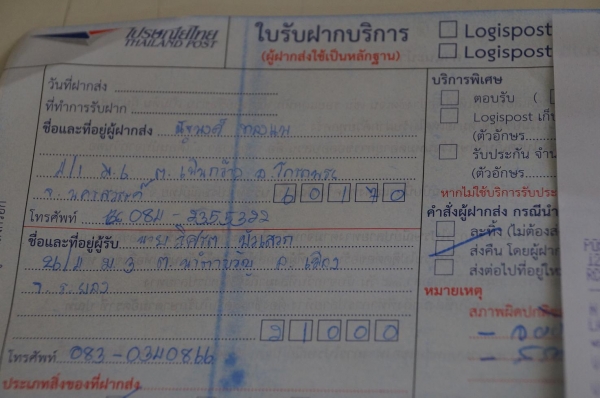 ไปรษณีย์ไทย
THAILAND POST
ใบรับฝากบริการ
(ผู้ฝากส่งใช้เป็นหลักฐาน)
Logispost
Logispost
วันที่ฝากส่ง
ที่ทำการรับฝาก
ชื่อและที่อยู่ผู้ฝากส่ง
ม. 6 ต.
จ. นครสวรรค์ 60170
โทรศัพท์ 084-2355322
ชื่อและที่อยู่ผู้รับ นาย
ม 3 ต. อ. เมือง
จ. ระยอง
21000
โทรศัพท์ 083-0340866
ประเภทสิ่งของที่ฝากส่ง
บริการพิเศษ
ตอบรับ (
Logispost เก็
(ตัวอักษร
รับประกัน จำน
(ตัวอักษร
หากไม่ใช้บริการรับประ
คำสั่งผู้ฝากส่ง กรณีนำ
ละทิ้ง (ไม่ต้องส
ส่งคืน โดยผู้ฝาก
ส่งต่อไปที่อยู่ให
หมายเหตุ
สภาพผิดปกติ